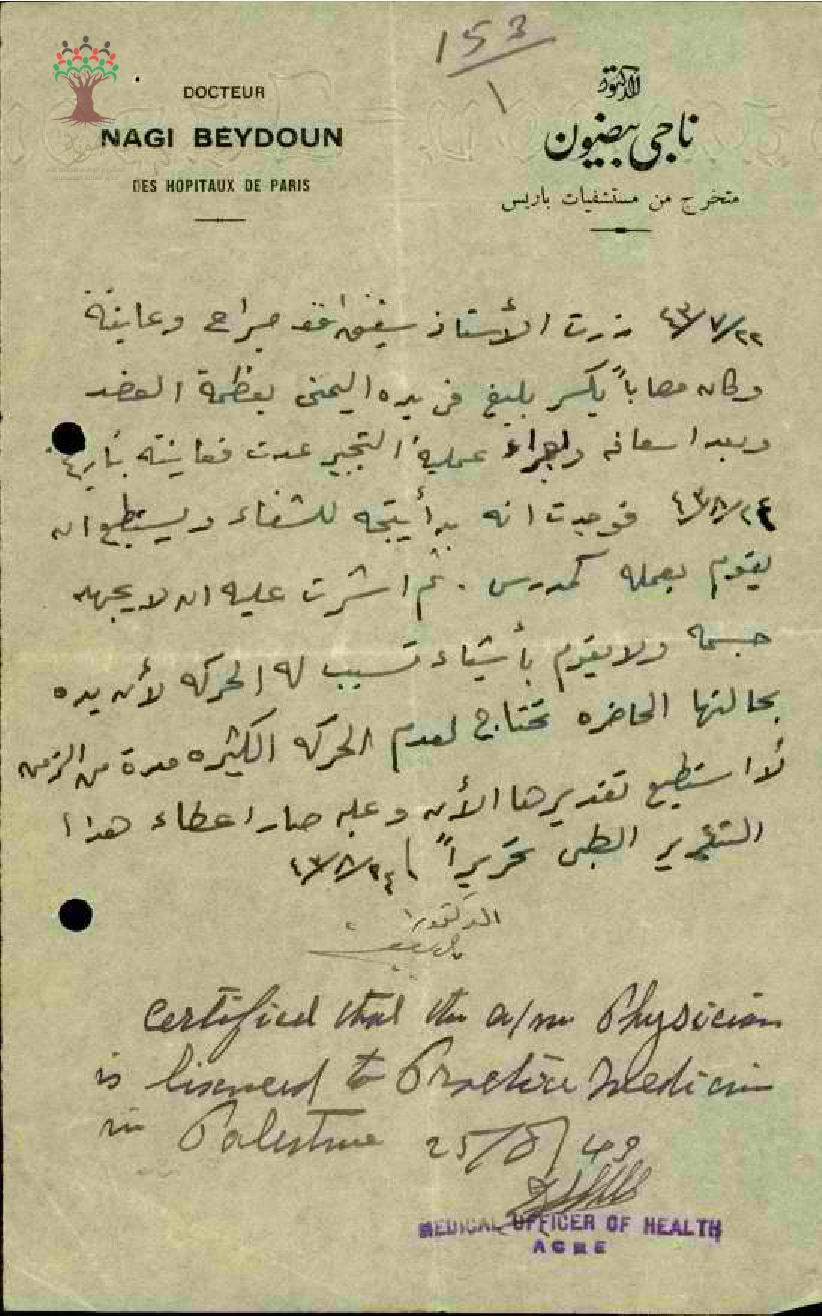 153
١
DOCTEUR
NAGI BEYDOUN
DES HOPITAUX DE PARIS
الدكتور
ناجي بيضون
متخرج من مستشفيات باريس
٤٣/٧/٢٢ زرت الأستاذ وعاينته
وكان مصاباً بكسر بليغ في يده اليمنى بعظمة العضد
وبعد اسعافه واجراء عملية التجبير عدت فعاينته بتاريخ
٤٣/٨/٢٤ فوجدت انه بدأ يتجه للشفاء ويستطيع ان
يقوم بعمله كمدرس . ثم اشرت عليه ان لا يجهد
جسمه ولا يقوم بأشياء تسبب له الحركه لأن يده
بحالتها الحاضره تحتاج لعدم الحركه الكثيره مدة من الزمن
لا استطيع تقديرها الأن وعليه صار اعطاء هذا
التقرير الطبي تحريراً ٤٣/٨/٢٤
الدكتور
Certified that the a/m Physician
is licenced to Practice Medicine
in Palestine 25/8/43
MEDICAL OFFICER OF HEALTH
ACRE